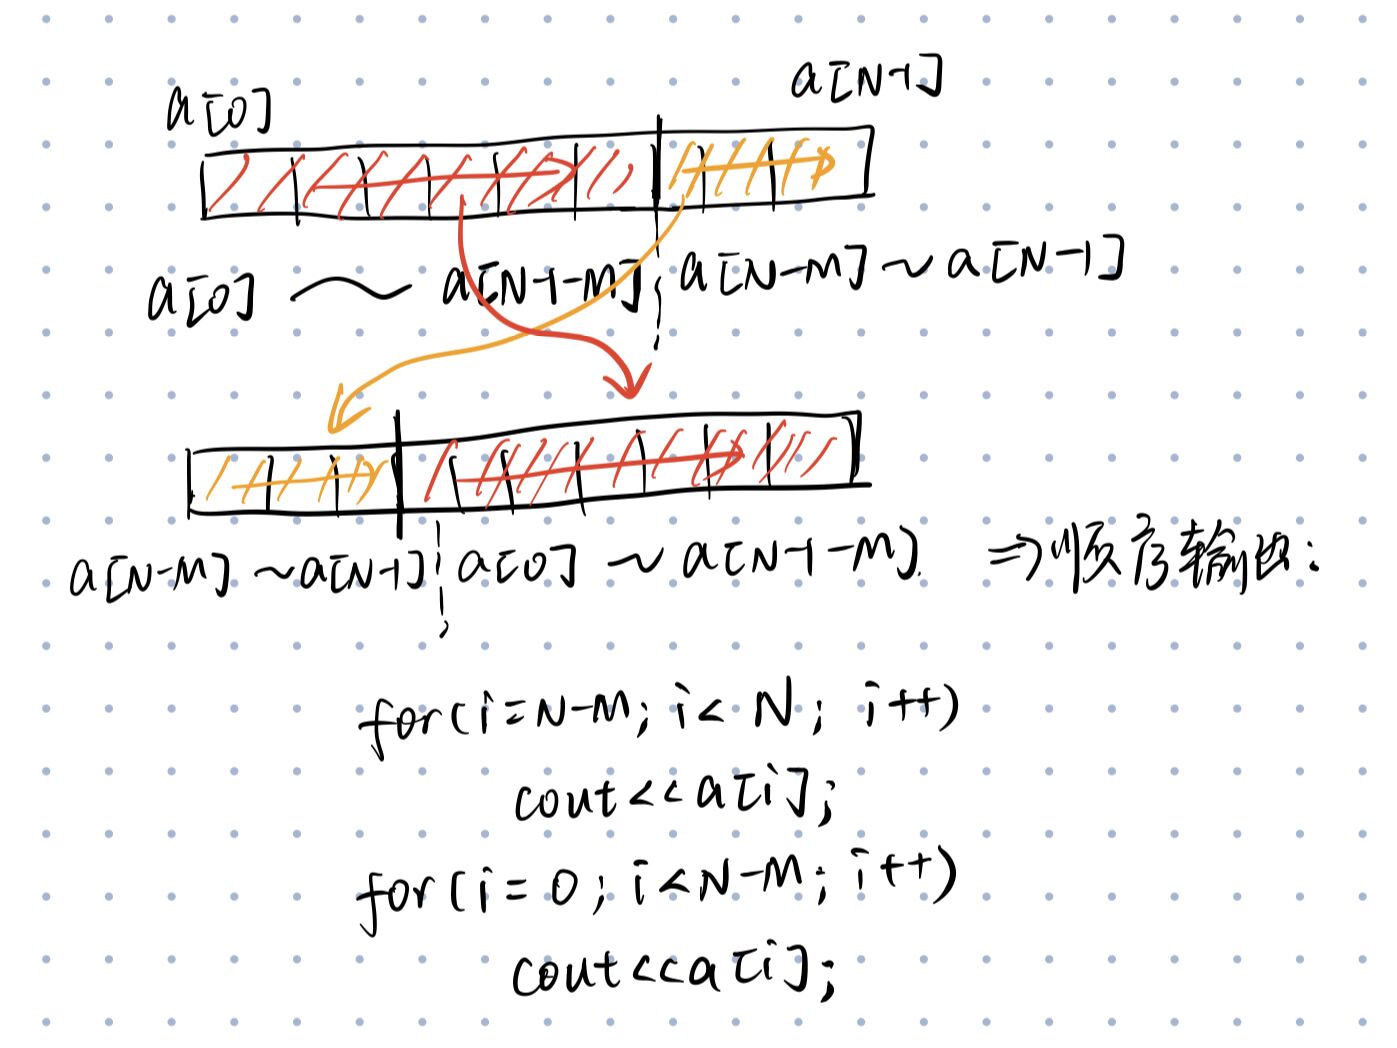 a[0]
a[N-1]
a[0] ～ a[N-1-M] a[N-M]～a[N-1]
a[N-M]～a[N-1] a[0]～a[N-1-M] ⇒顺序输出:
for(i=N-M; i<N; i++)
cout<<a[i];
for(i=0; i<N-M; i++)
cout<<a[i];